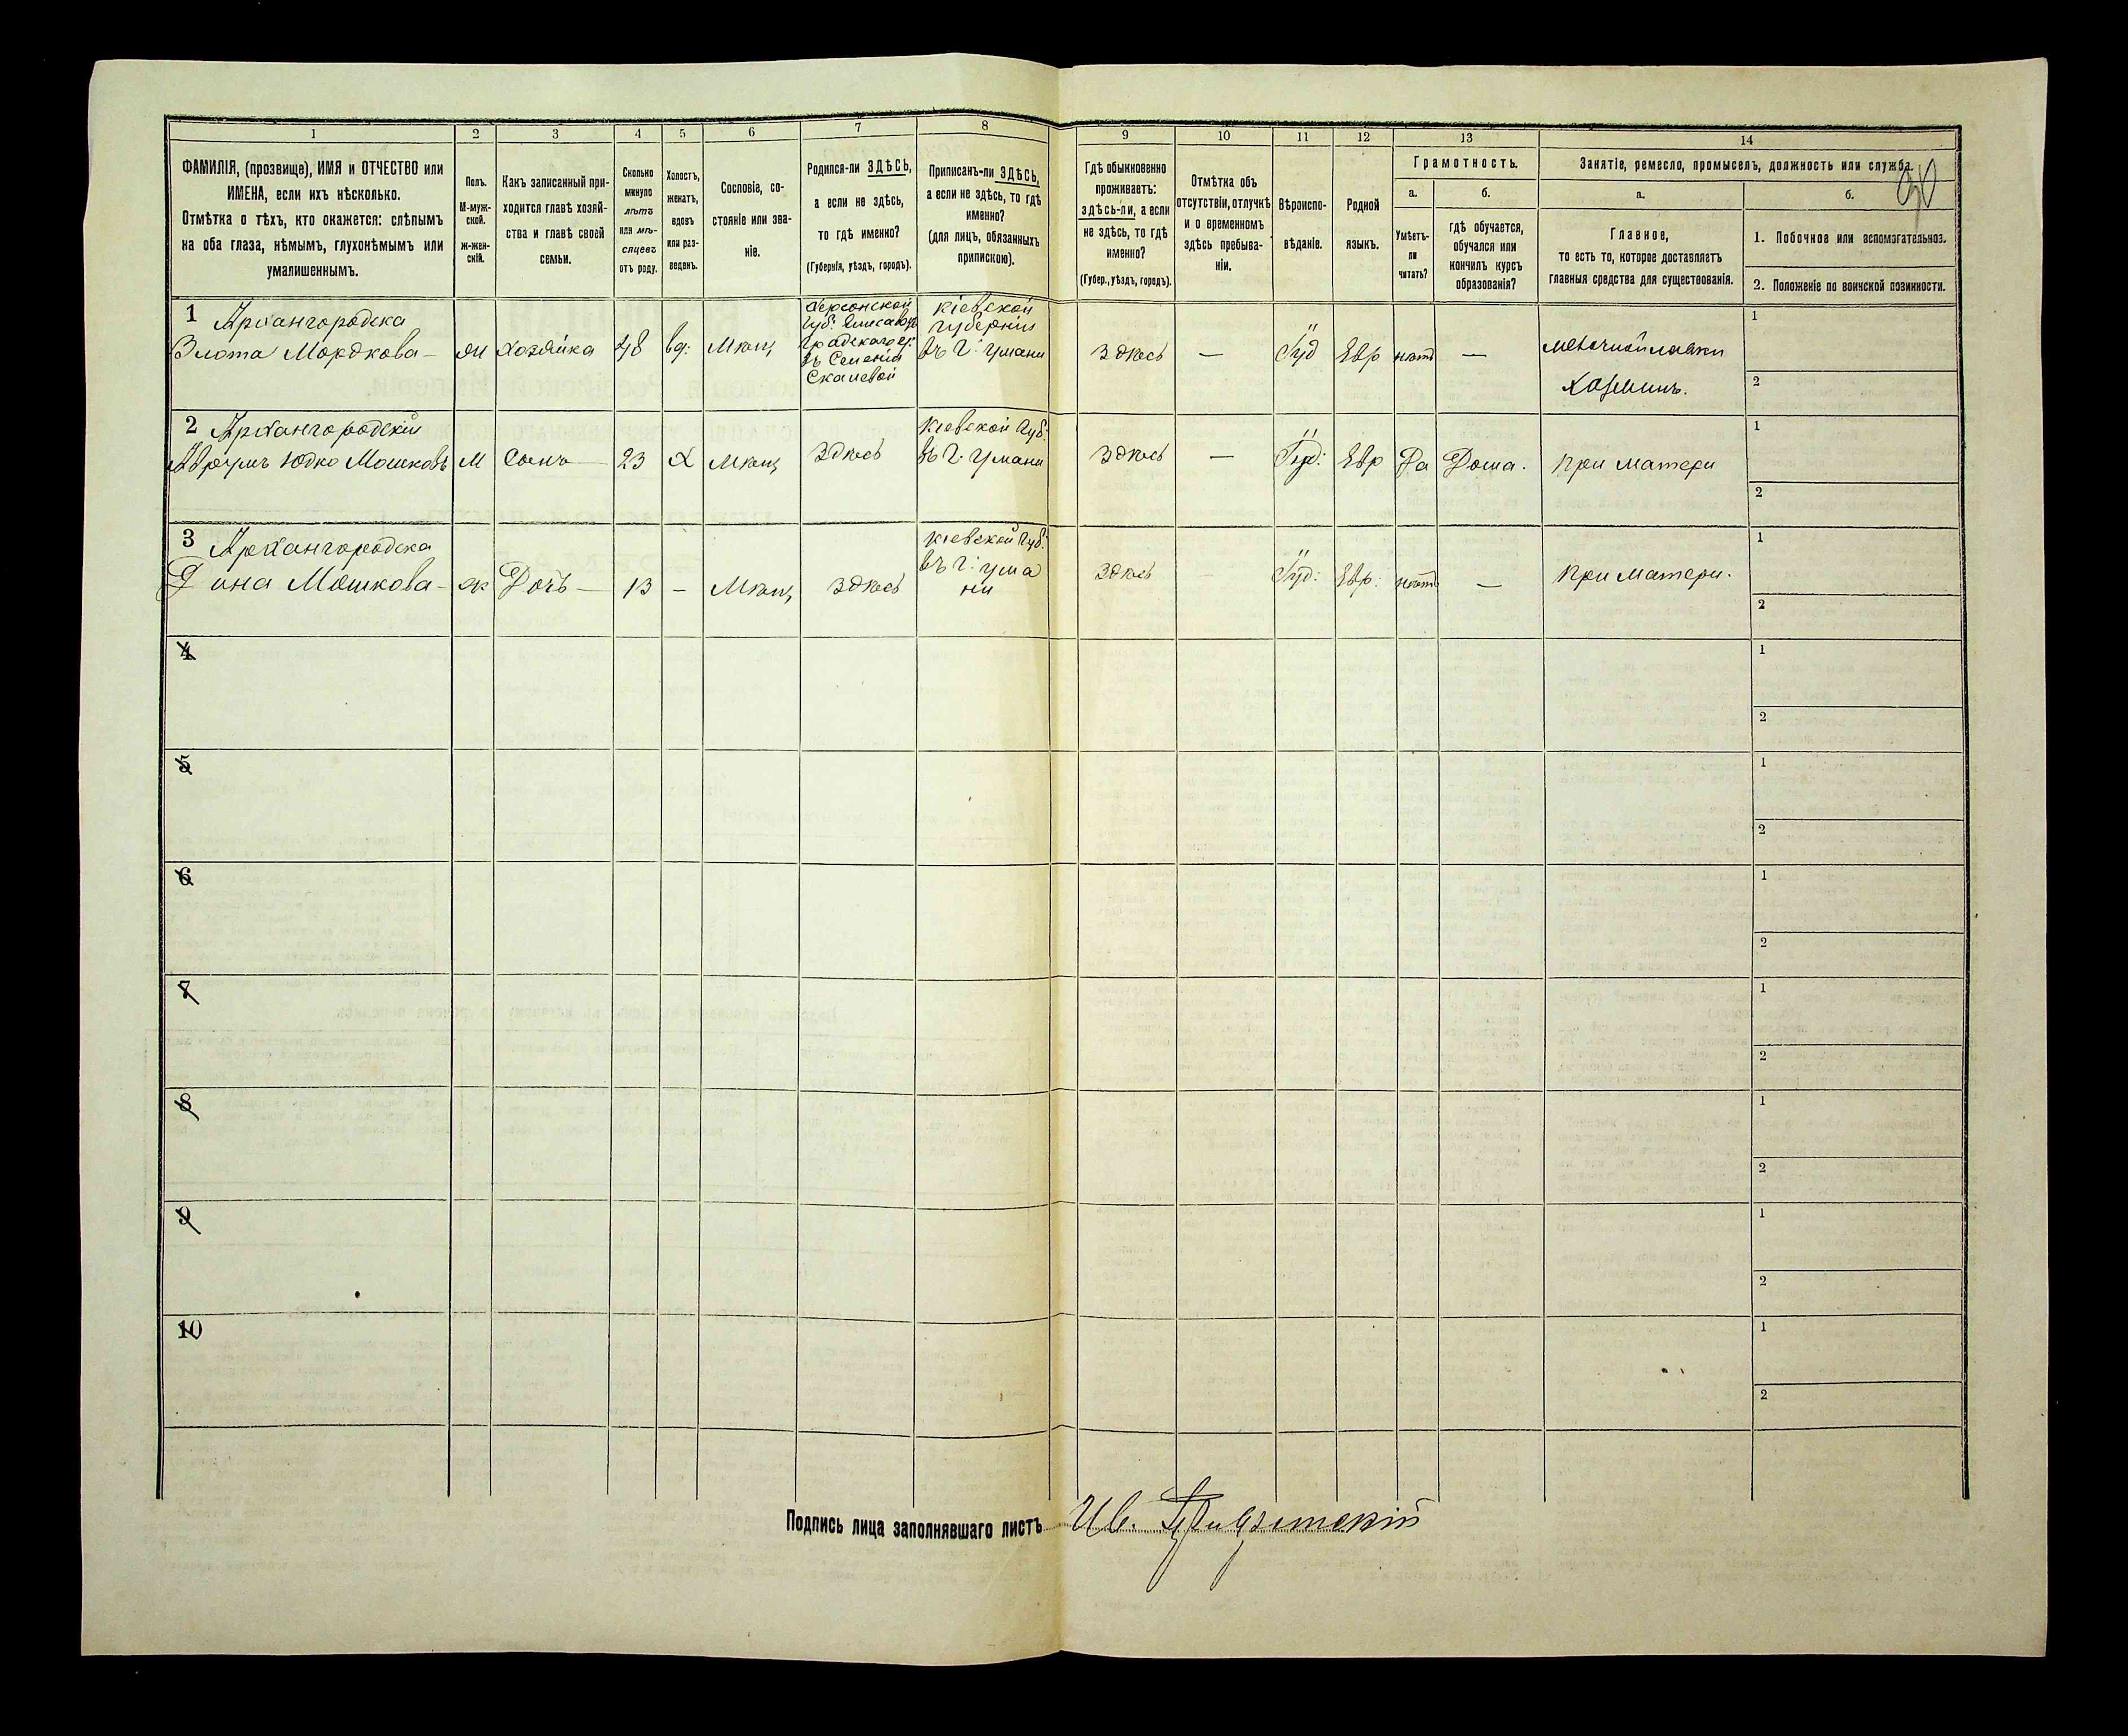 1 2 3 4 5 6 7 8 9 10 11 12 13 14
ФАМИЛІЯ, (прозвище), ИМЯ и ОТЧЕСТВО или
ИМЕНА, если ихъ нѣсколько.
Отмѣтка о тѣхъ, кто окажется: слѣпымъ
на оба глаза, нѣмымъ, глухонѣмымъ или
умалишеннымъ.
Полъ.
М-муж-
ской.
ж-жен-
скій.
Какъ записанный при-
ходится главѣ хозяй-
ства и главѣ своей
семьи.
Сколько
минуло
лѣтъ
или мѣ-
сяцевъ
отъ роду.
Холостъ,
женатъ,
вдовъ
или раз-
веденъ.
Сословіе, со-
стояніе или зва-
ніе.
Родился-ли ЗДѢСЬ,
а если не здѣсь,
то гдѣ именно?
(Губернія, уѣздъ, городъ).
Приписанъ-ли ЗДѢСЬ,
а если не здѣсь, то гдѣ
именно?
(для лицъ, обязанныхъ
припискою).
Гдѣ обыкновенно
проживаетъ:
здѣсь-ли, а если
не здѣсь, то гдѣ
именно?
(Губер., уѣздъ, городъ).
Отмѣтка объ
отсутствіи, отлучкѣ
и о временномъ
здѣсь пребыва-
ніи.
Вѣроиспо-
вѣданіе.
Родной
языкъ.
Грамотность.
а.
Умѣетъ-
ли
читать?
б.
гдѣ обучается,
обучался или
кончилъ курсъ
образованія?
Занятіе, ремесло, промыселъ, должность или служба.
а.
Главное,
то есть то, которое доставляетъ
главныя средства для существованія.
б.
1. Побочное или вспомогательное.
2. Положеніе по воинской повинности.
1
Архангородска
Злота Мордкова —
жи
хозяйка
48
вд:
Мѣщ
Херсонской
Губ: Елисавет
градскаго у:
въ Селеніи
Скалевой
Кіевской
Губерніи
въ Г: Умани
Здѣсь
—
Іуд
Евр
нѣтъ
—
мелочной лавки
Хозяинъ.
1
2
2
Архангородскій
Аврумъ Юдко Мошковъ
М
Сынъ —
23
Х
Мѣщ
Здѣсь
Кіевской Губ:
въ Г: Умани
Здѣсь
—
Іуд:
Евр
Да
Дома.
При матери
1
2
3
Архангородска
Дина Мошкова —
ж
Дочь —
13
—
Мѣщ
Здѣсь
Кіевской Губ:
въ Г: Ума
ни
Здѣсь
Іуд:
Евр:
нѣтъ
—
При матери.
1
2
4
1
2
5
1
2
6
1
2
7
1
2
8
1
2
9
1
2
10
1
2
Подпись лица заполнявшаго листъ Ив.